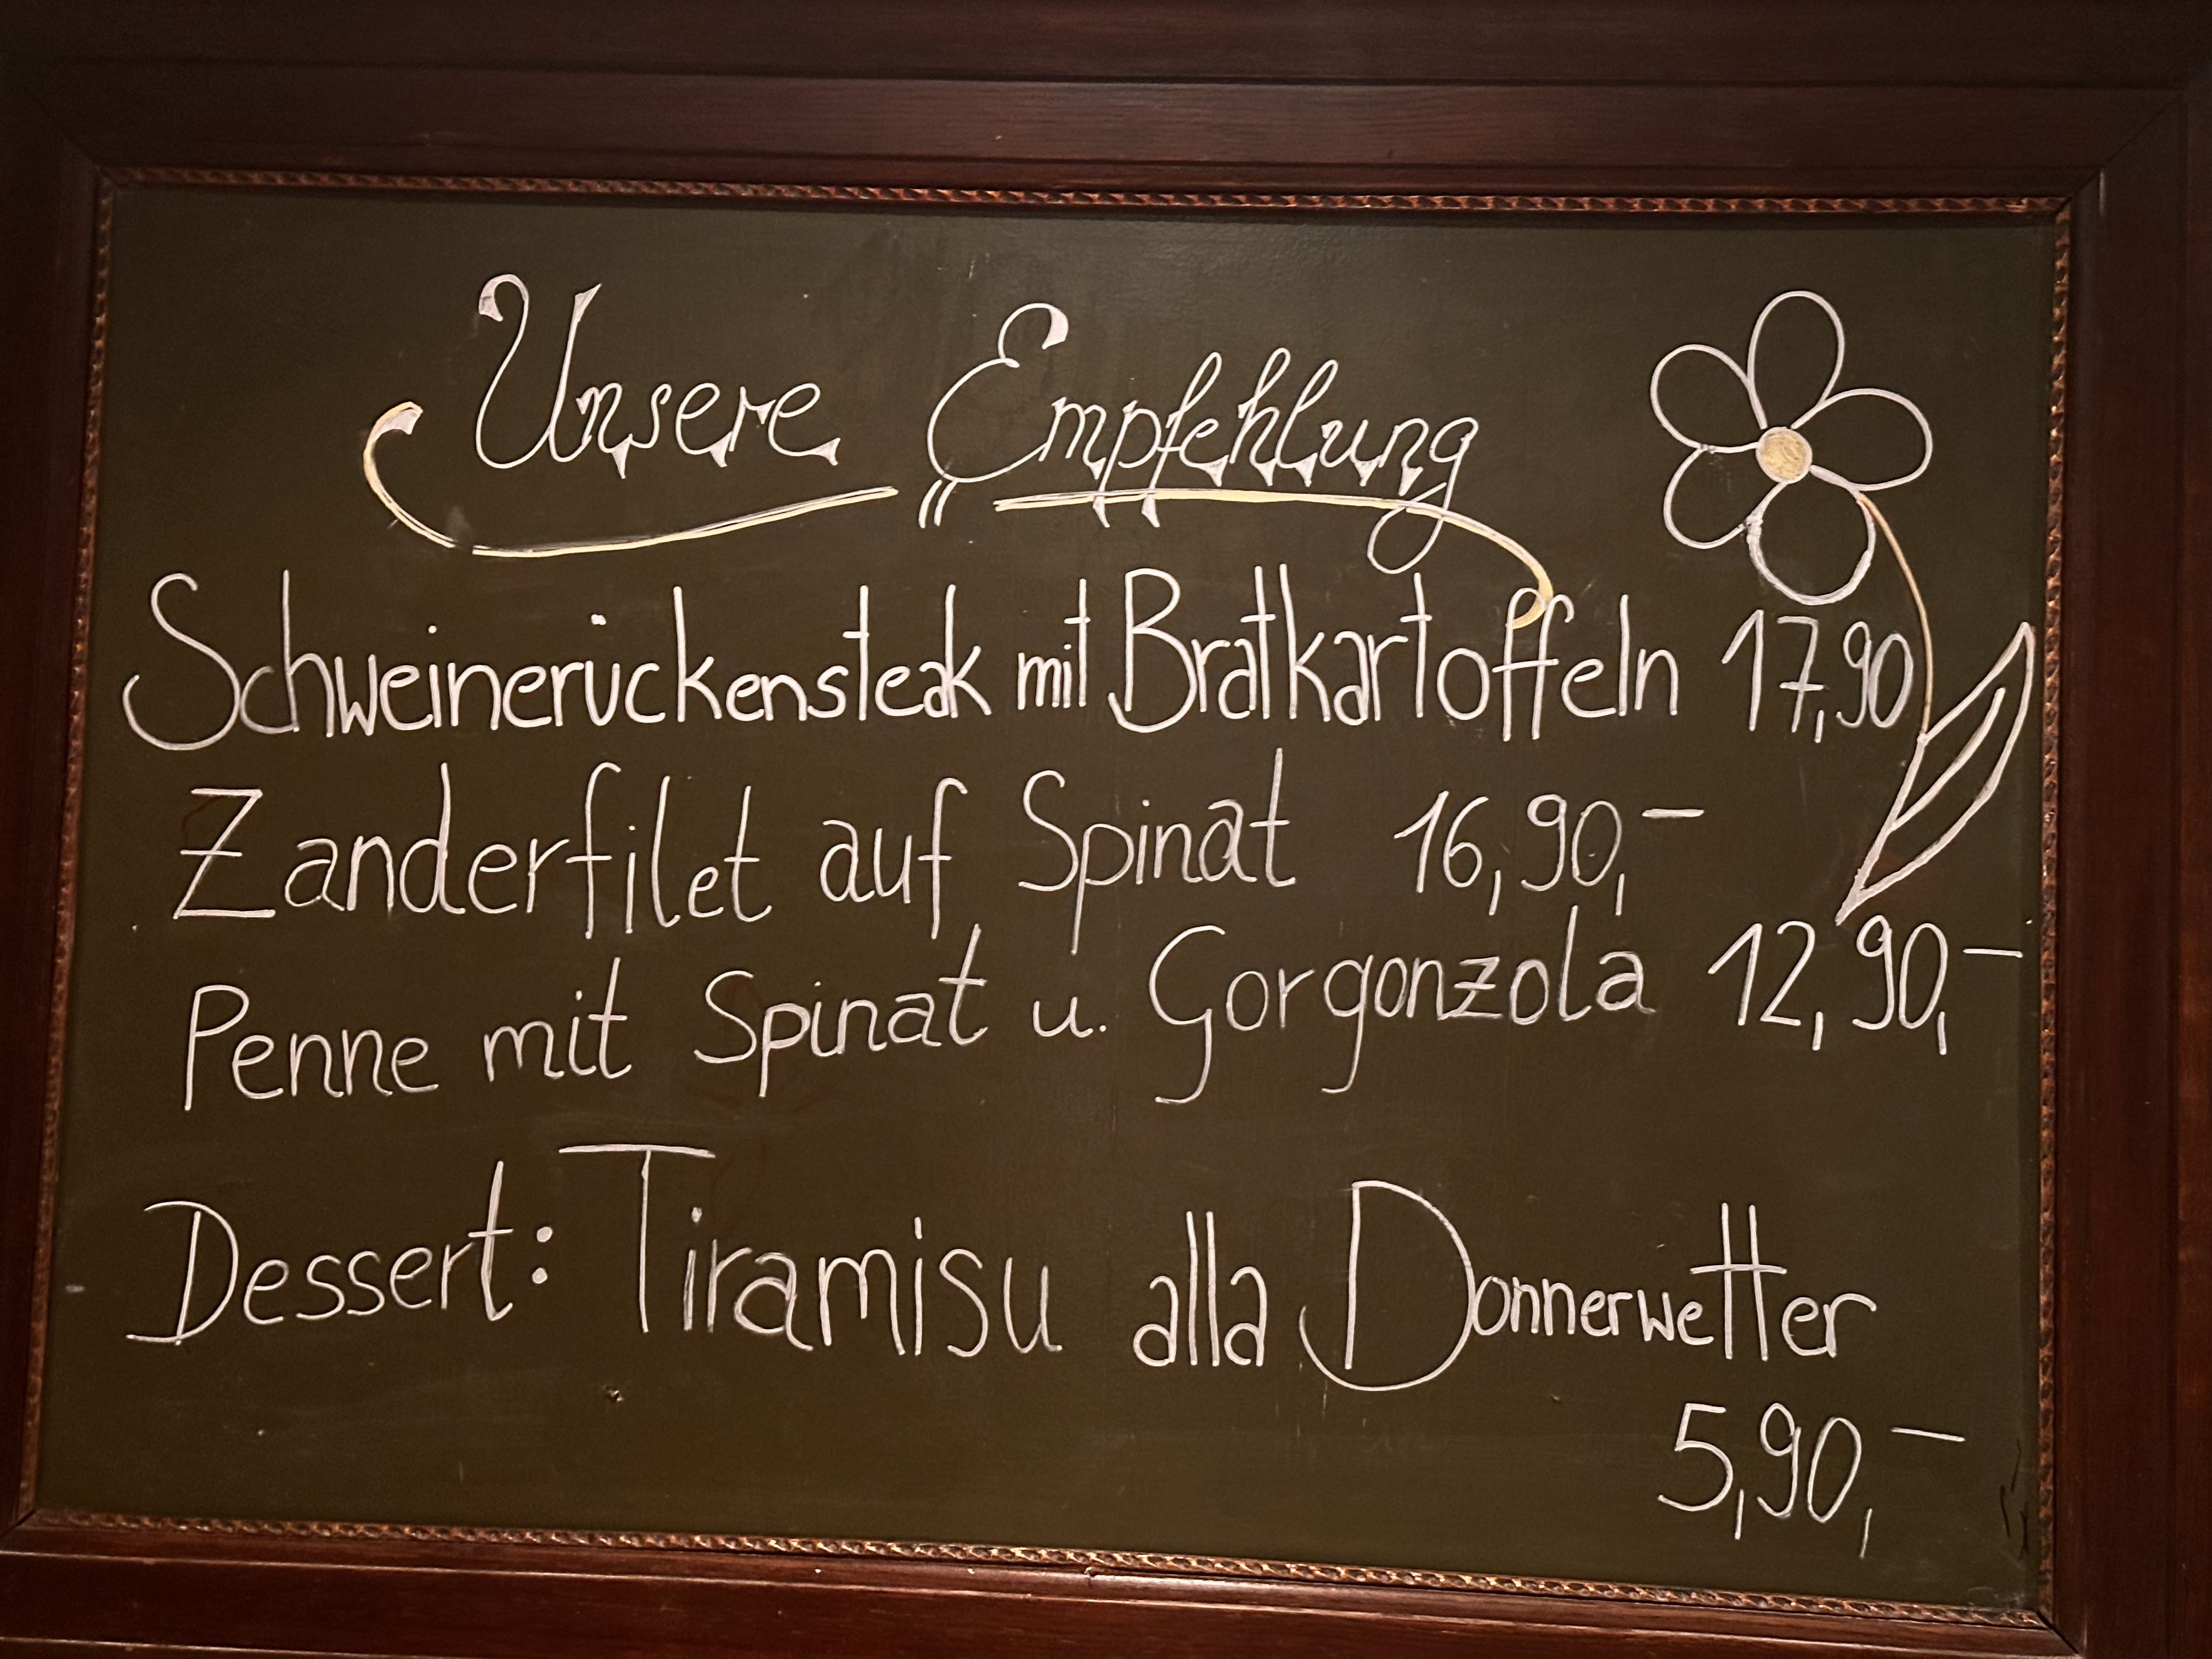 Unsere Empfehlung
Schweinerückensteak mit Bratkartoffeln 17,90
Zanderfilet auf Spinat 16,90,-
Penne mit Spinat u. Gorgonzola 12,90,-
Dessert: Tiramisu alla Donnerwetter
5,90,-